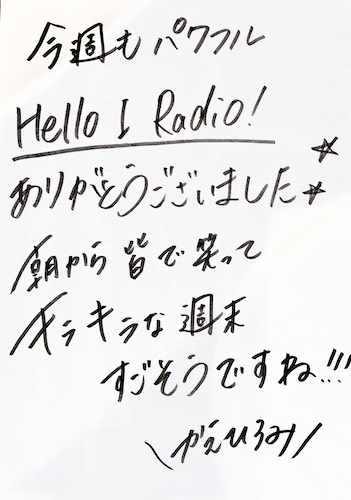 今週もパワフル
Hello I Radio!
ありがとうございました☆☆
朝から皆で笑って
キラキラな週末
すごそうですね!!!
\かえひろみ/